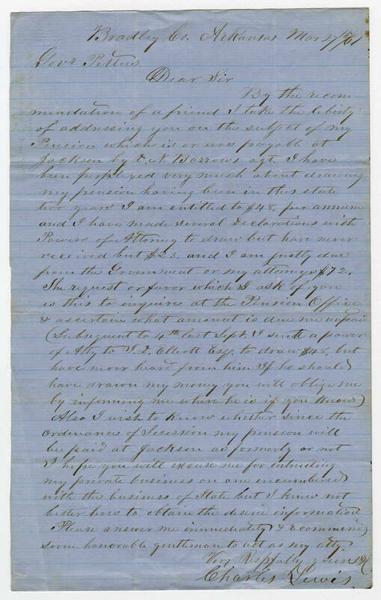 Bradley Co. Arkansas Mar 7/61
Govr Pettus
Dear Sir
By the recom
mendation of a friend I take the liberty
of addressing you on the subject of my
Pension which is or was payable at
Jackson by Burrows agt. I have
been perplexed very much about drawing
my pension having been in this state
two years I am entitled to $48, per annum
and I have made several declarations with
Powers of Attorney to draw but have never
received but $23. and I am justly due
from the Government or my attorneys $72.
The request or favor which I ask of you
is this to enquire at the Pension Office
& ascertain what amount is due me unpaid
(Subsequent to 4th last Sept. I sent a power
of Atty to Elliott Esq. to draw $48, but
have never heard from him If he should
have drawn my money you will oblige me
by informing me where he is if you know)
Also I wish to know whether since the
ordinance of Secession my pension will
be paid at Jackson as formerly or not
I hope you will excuse me for intruding
my private business on one encumbered
with the business of State but I knew not
better how to obtain the desire information
Please answer me immediately & recommend
some honorable gentleman to act as my atty.
Very Respfully yours &c
Charles Lewis